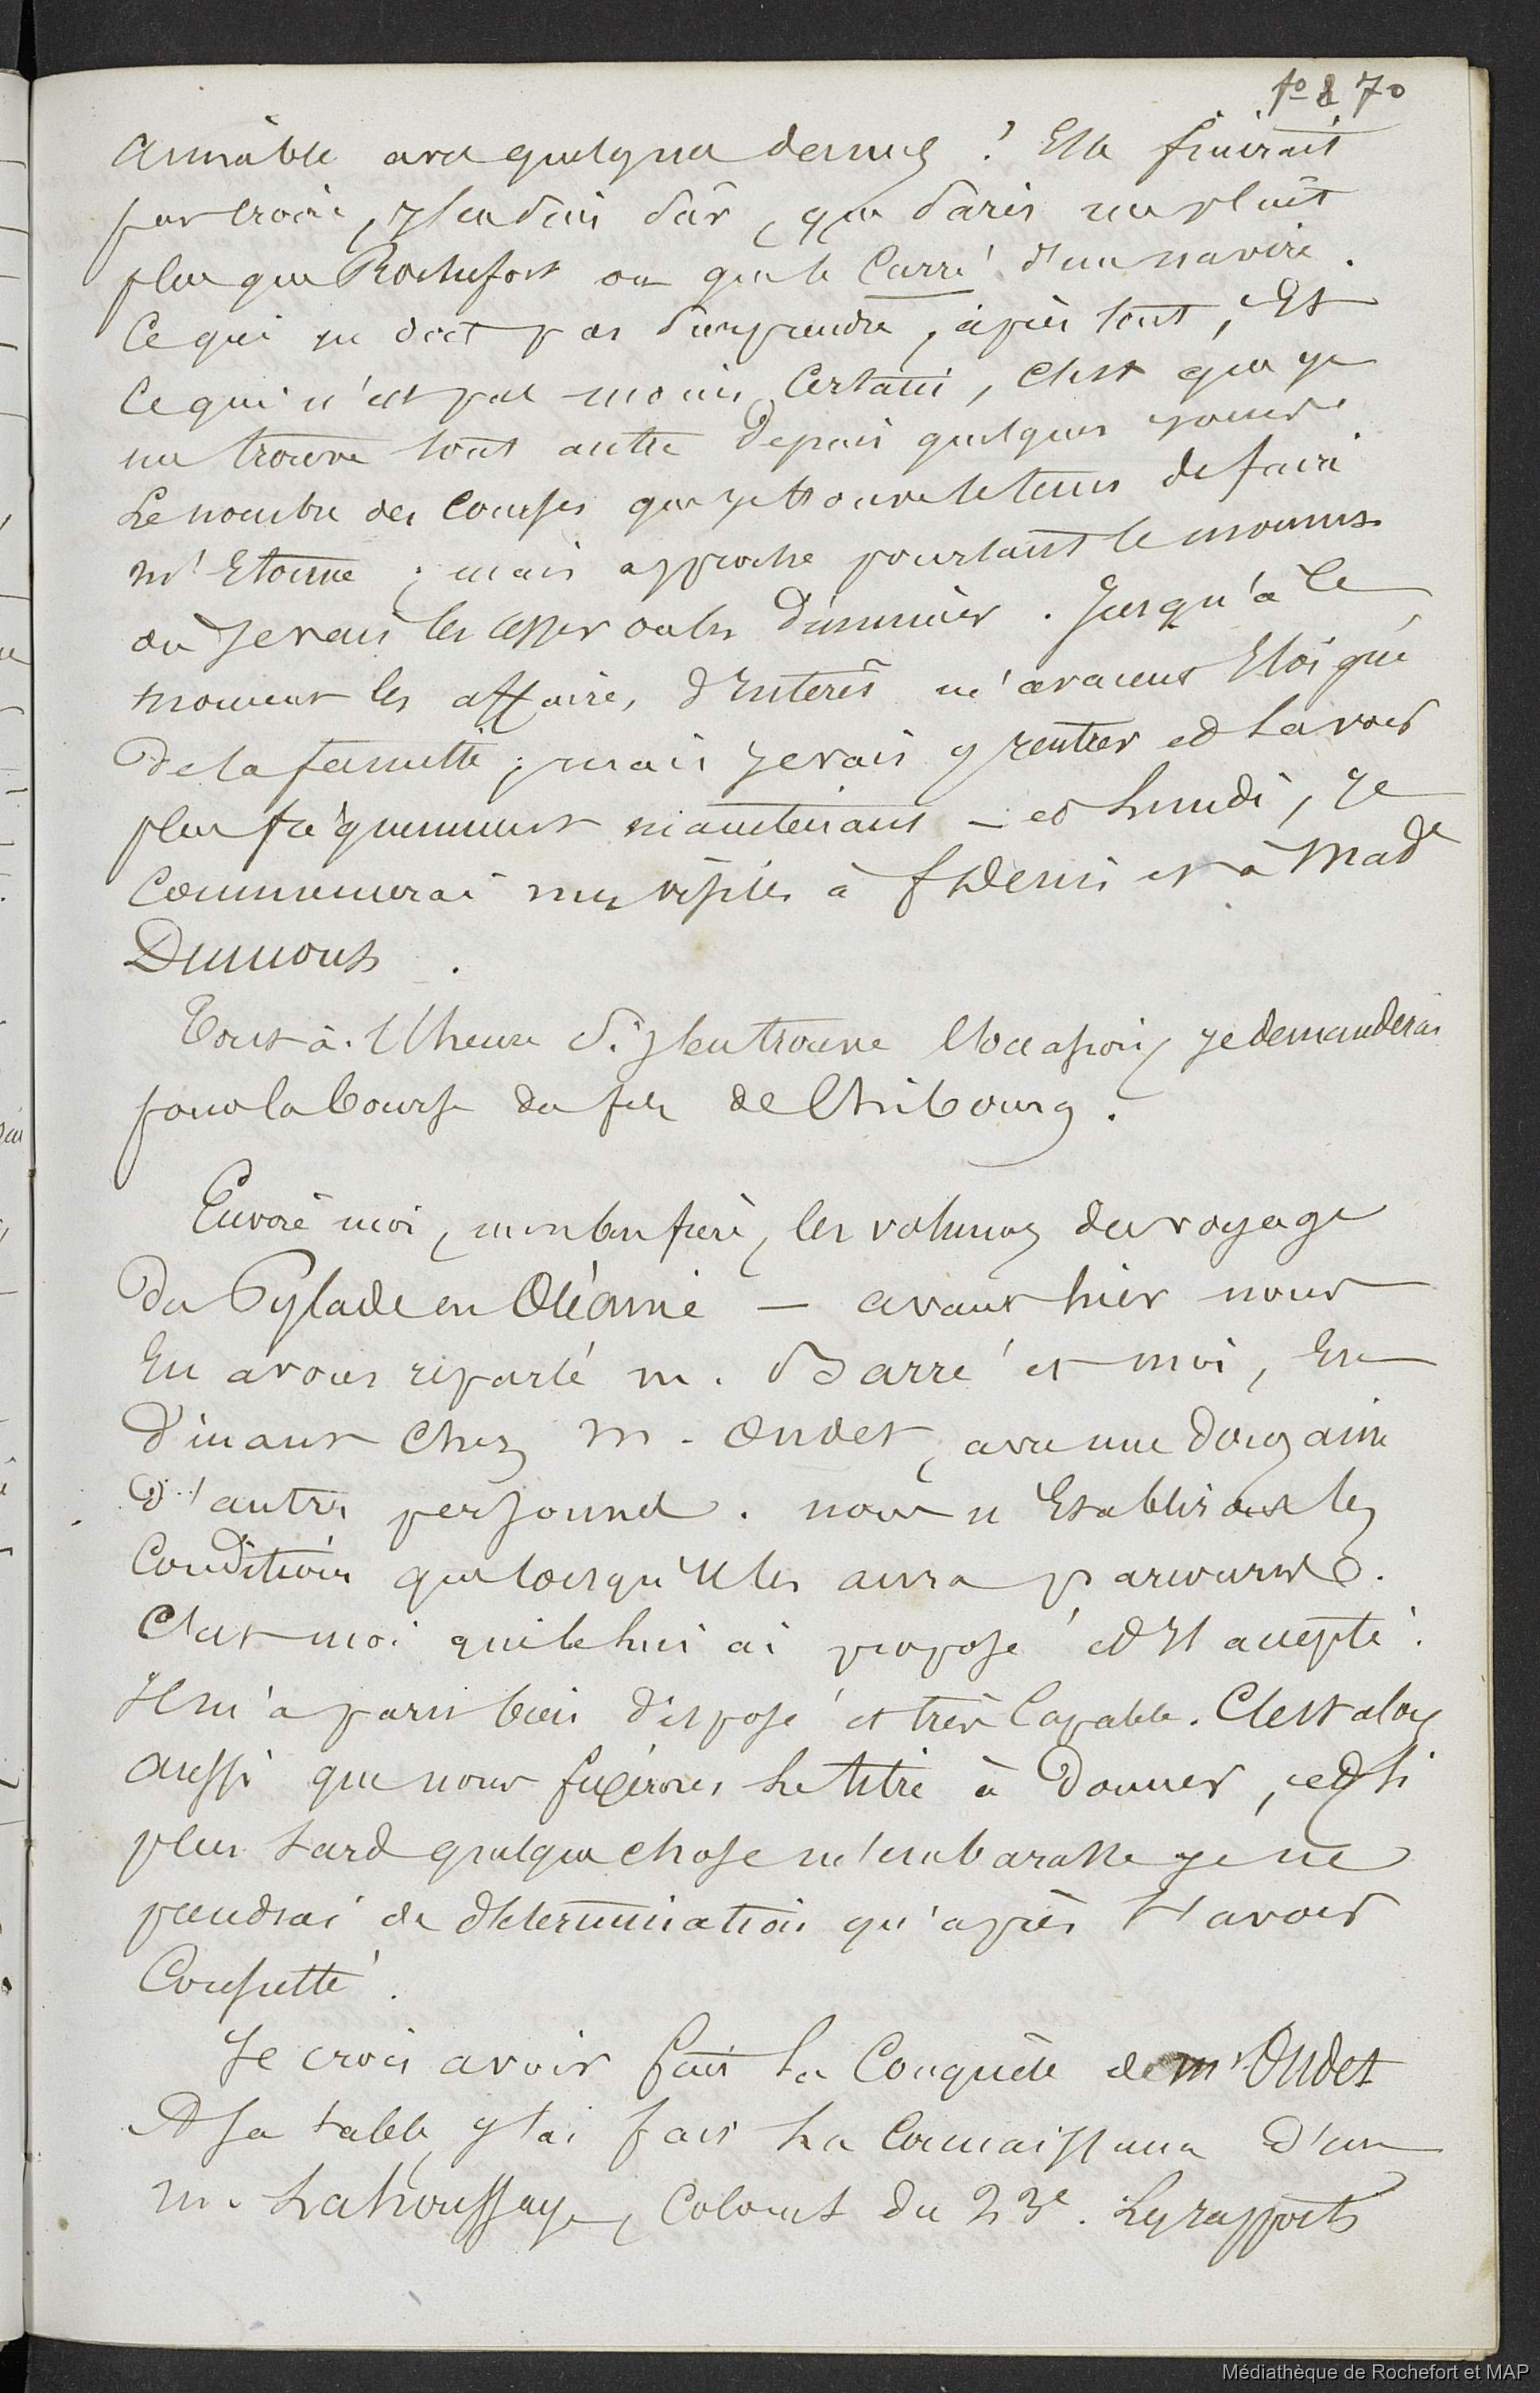 fo 70
aimable avec quelqu'un de nous ! Elle finirait
par croire, j'en suis sûr, que Paris me plait
plus que Rochefort ou que le Carré d'un navire.
Ce qui ne doit pas surprendre, après tout, Et
Ce qui n'est pas moins Certain, C'est que je
me trouve tout autre Depuis quelques jours
Le nombre des Courses que je trouve le tems de faire
m'Etonne ; mais approche pourtant le moment
où Je vais les cesser ou les Diminuer. Jusqu'à Ce
moment les affaires D'Interêt m'avaient Eloigné
De la famille ; mais je vais y rentrer et la voir
plus fréquemment maintenant - et Lundi, Je
Commencerai mes visites à St Denis et à Made
Dumont.
Tout à l'heure Si j'en trouve l'occasion, je demanderai
pour la bourse du fils de Chibourg.
Envoie moi, mon bon frère, les volumes du voyage
Du Pylade en Océanie - avant hier nous
En avons reparlé m. Barré et moi, En
Dinant Chez M. Oudet, avec une Douzaine
D'autres personnes. nous n'Etablirons les
Conditions que lorsqu'Il les aura parcourus.
C'est moi qui le lui ai proposé et Il a accepté.
Il m'a paru bien Disposé et très Capable. C'est alors
aussi que nous fixerons le titre à Donner, et si
plus tard quelque chose m'embarasse je ne
prendrai de détermination qu'après t'avoir
Consulté.
Je crois avoir fait la Conquête de Mr Oudet
A sa table, j'ai fait la Connaissance D'un
m. Lahoussaye, Colonel du 23e. Les rapports
Médiathèque de Rochefort et MAP